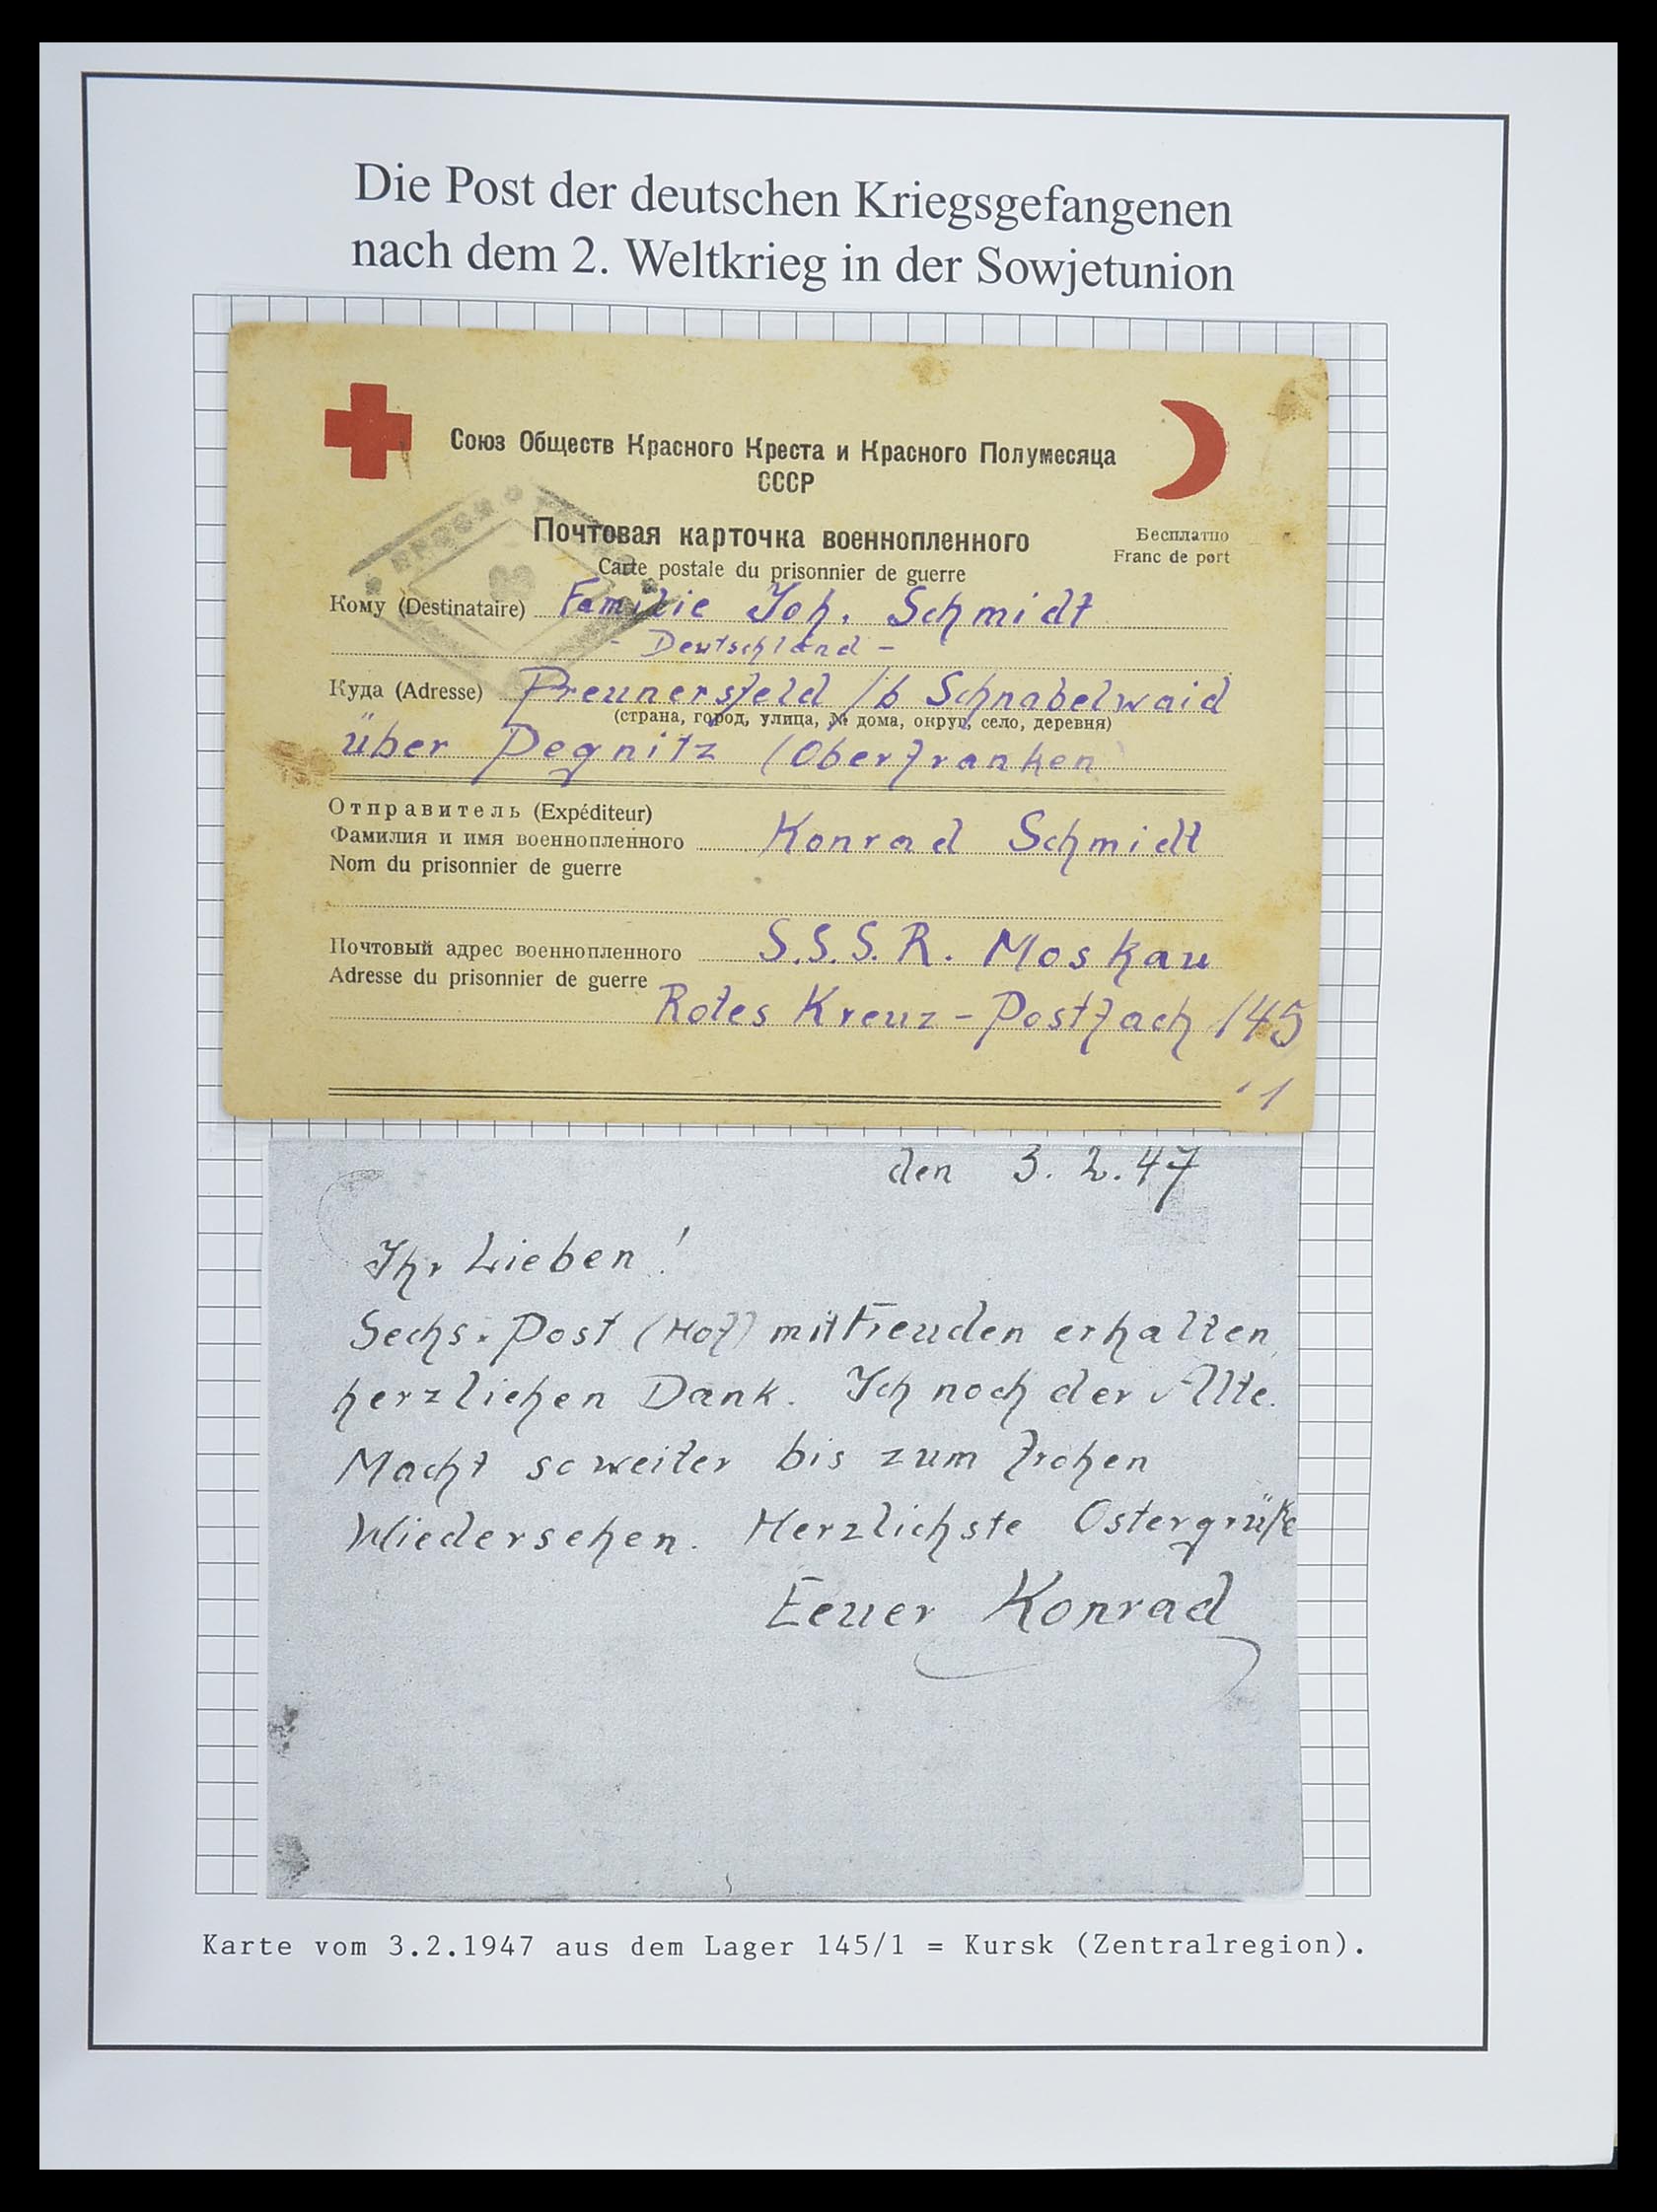 Die Post der deutschen Kriegsgefangenen
nach dem 2. Weltkrieg in der Sowjetunion
Союз Обществ Красного Креста и Красного Полумесяца
СССР
Почтовая карточка военнопленного
Бесплатно
Carte postale du prisonnier de guerre
Franc de port
Кому (Destinataire) Familie Joh. Schmidt
- Deutschland -
Куда (Adresse) Preunersfeld /b Schnabelwaid
(страна, город, улица, № дома, округ, село, деревня)
über Pegnitz (Oberfranken
Отправитель (Expéditeur)
Фамилия и имя военнопленного Konrad Schmidt
Nom du prisonnier de guerre
Почтовый адрес военнопленного S.S.S.R. Moskau
Adresse du prisonnier de guerre
Rotes Kreuz - Postfach 145
/1
den 3.2.47
Ihr Lieben!
Sechs. Post (Hof) mit Freuden erhalten,
herzlichen Dank. Ich noch der Alte.
Macht so weiter bis zum frohen
Wiedersehen. Herzlichste Ostergrüße
Eeuer Konrad
Karte vom 3.2.1947 aus dem Lager 145/1 = Kursk (Zentralregion).